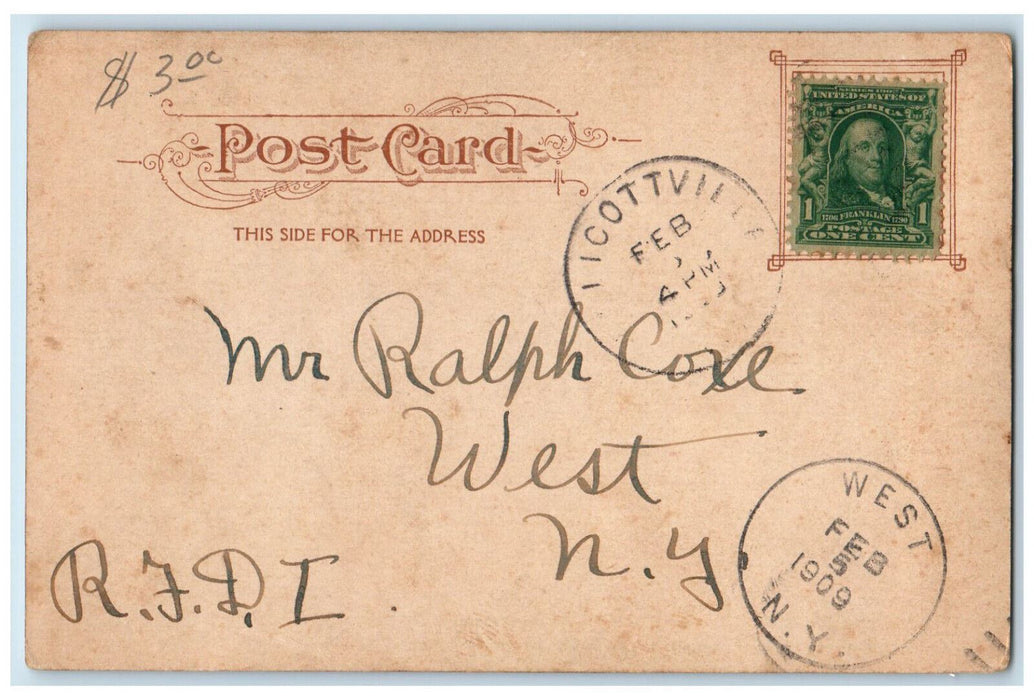 $ 3.00
Post Card
THIS SIDE FOR THE ADDRESS
SERIES 1902
UNITED STATES OF
AMERICA
1 1706 FRANKLIN 1790 1
POSTAGE
ONE CENT
FEB
PM
Mr Ralph Coxe
West
N.Y
R.F.D, I.
WEST
FEB
5
1909
N.Y.